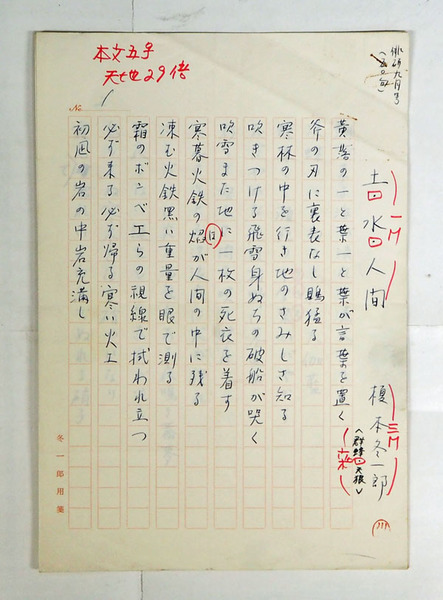 俳研九月号
土・水・人間
榎本冬一郎
(群蜂・天狼)
黄落の一と葉一と葉が言葉を置く
斧の刃に裏表なし鵙猛る
寒林の中を行き地のさみしさ知る
吹きつける飛雪身ぬちの破船が哭く
吹雪また地に一枚の死衣を着す
寒暮火鉄の焔が人間の中に残る
凍む火鉄黒い重量を眼で測る
霜のボンベ工らの視線で拭われ立つ
必ず来る必ず帰る寒い火工
初凪の岩の中岩充満し
本文五号
天地29倍
No.
冬一郎用箋